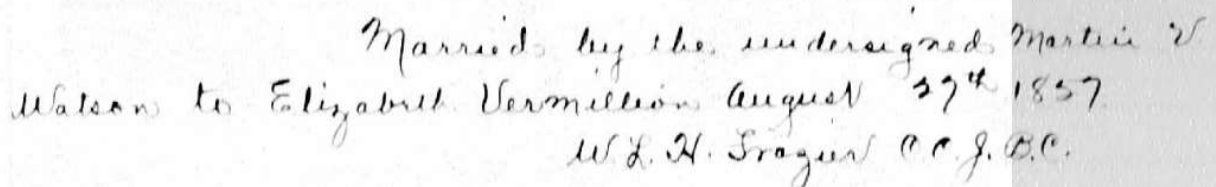 Married by the undersigned Martin V
Watson to Elizabeth Vermillion August 27th 1857
W. L. H. Frazier C.C.J.B.C.